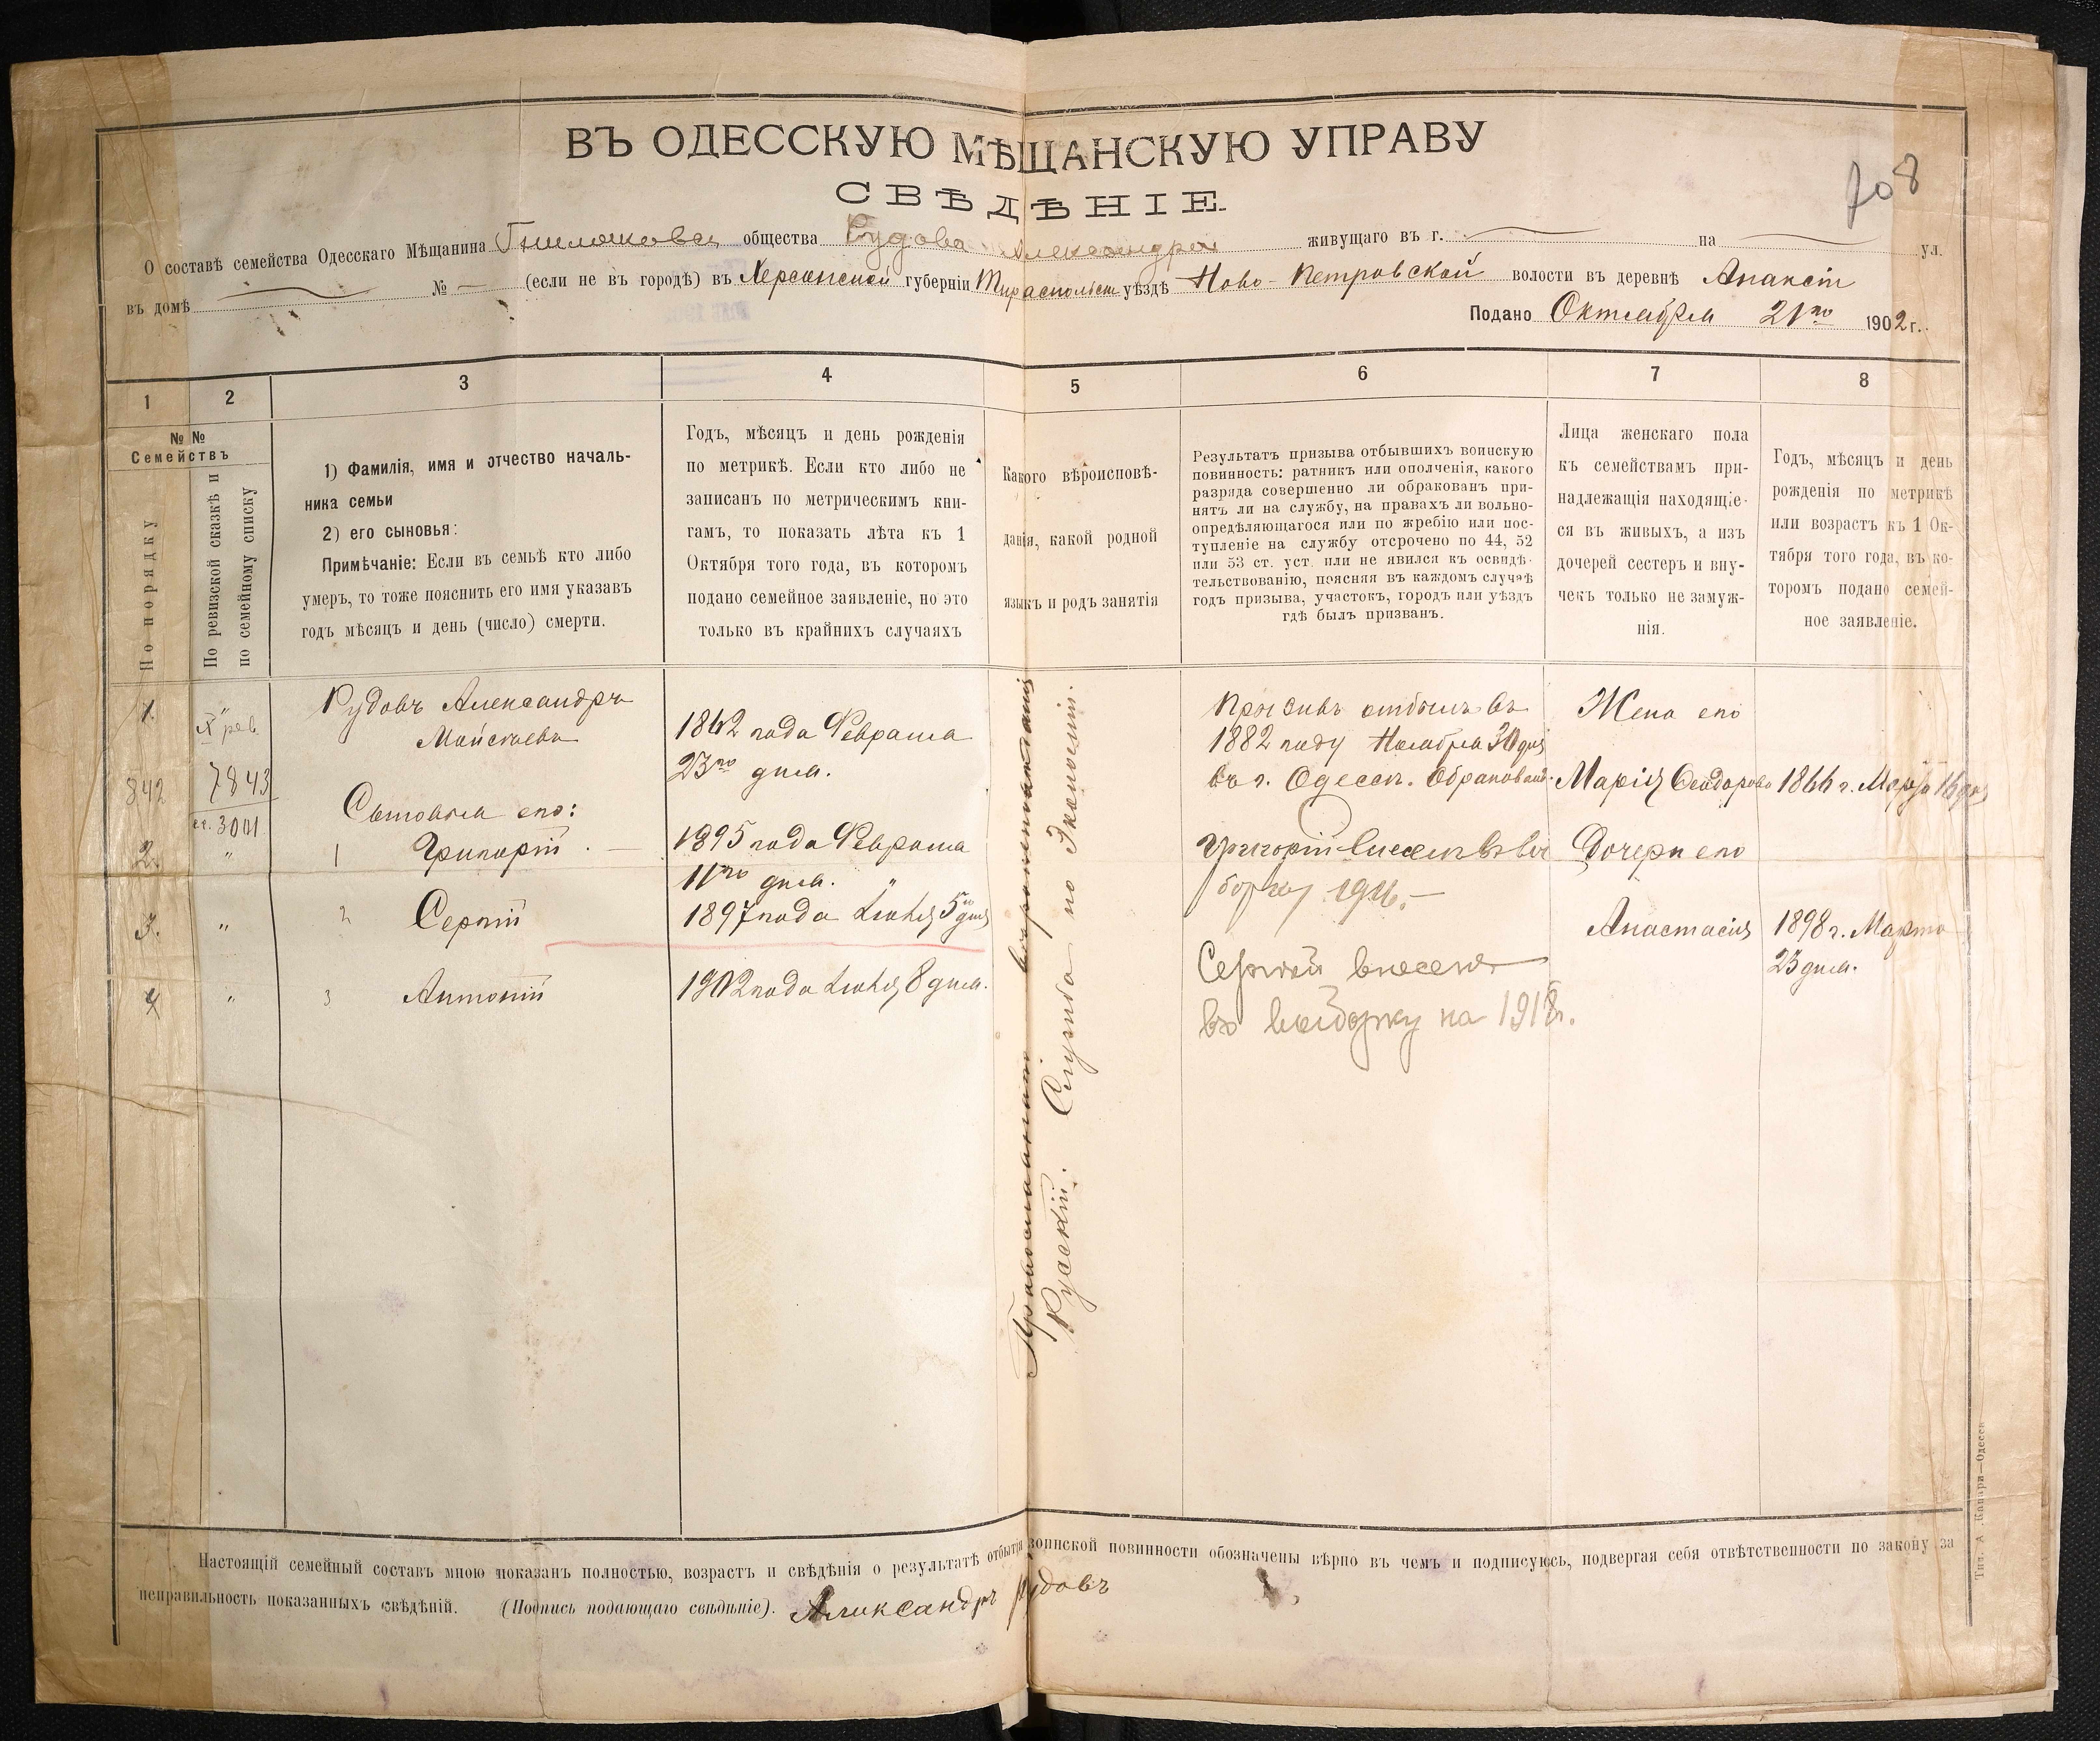 ВЪ ОДЕССКУЮ МѢЩАНСКУЮ УПРАВУ
708
СВѢДѢНІЕ
О составѣ семейства Одесскаго Мѣщанина общества Рудова Александра живущаго въ г. на ул.
въ домѣ № — (если не въ городѣ) въ Херсонской губерніи уѣздѣ Ново-Петровской волости въ деревнѣ
Подано Октября 21го 1902 г.
1 2 3 4 5 6 7 8
№ №
Семействъ
По порядку
По ревизской сказкѣ и
по семейному списку
1) Фамилія, имя и отчество началь-
ника семьи
2) его сыновья:
Примѣчаніе: Если въ семьѣ кто либо
умеръ, то тоже пояснить его имя указавъ
годъ мѣсяцъ и день (число) смерти.
Годъ, мѣсяцъ и день рожденія
по метрикѣ. Если кто либо не
записанъ по метрическимъ кни-
гамъ, то показать лѣта къ 1
Октября того года, въ которомъ
подано семейное заявленіе, но это
только въ крайнихъ случаяхъ
Какого вѣроисповѣ-
данія, какой родной
языкъ и родъ занятія
Результатъ призыва отбывшихъ воинскую
повинность: ратникъ или ополченія, какого
разряда совершенно ли обракованъ при-
нятъ ли на службу, на правахъ ли вольно-
опредѣляющагося или по жребію или пос-
тупленіе на службу отсрочено по 44, 52
или 53 ст. уст. или не явился къ освидѣ-
тельствованію, поясняя въ каждомъ случаѣ
годъ призыва, участокъ, городъ или уѣздъ
гдѣ былъ призванъ.
Лица женскаго пола
къ семействамъ при-
надлежащія находящіе-
ся въ живыхъ, а изъ
дочерей сестеръ и вну-
чекъ только не замуж-
нія.
Годъ, мѣсяцъ и день
рожденія по метрикѣ
или возрастъ къ 1 Ок-
тября того года, въ ко-
торомъ подано семей-
ное заявленіе.
1.
X рев
842
7843
3001
Рудовъ Александръ
Мойсеевъ
1862 года Февраля
23го дня.
Сыновья его:
2. " 1 Григорій
1895 года Февраля
11го дня.
3. " 2 Сергій
1897 года Июня 5 дня
4 " 3 Антоній
1902 года Июня 8 дня.
Православнаго вѣроисповѣданія
Русскій. Служба по Экономіи.
Призывъ отбылъ въ
1882 году Ноября 30 дня
въ г. Одессѣ. Обракованъ.
Григорій внесенъ въ вы
борку 1916.
Сергей внесенъ
въ выборку на 1918г.
Жена его
Марія Феодорова 1866 г. Марта 16 дня
Дочери его
Анастасія 1898 г. Марта
23 дня.
Настоящій семейный составъ мною показанъ полностью, возрастъ и свѣдѣнія о результатѣ отбытія воинской повинности обозначены вѣрно въ чемъ и подписуюсь, подвергая себя отвѣтственности по закону за
неправильность показанныхъ свѣдѣній. (Подпись подающаго свѣдѣніе). Александръ Рудовъ
Тип. А. —Одесса